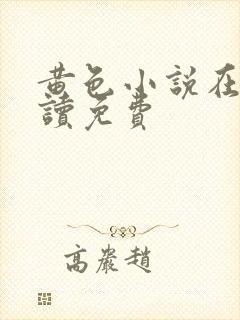 黄色小說在
讀免費
高嚴趙